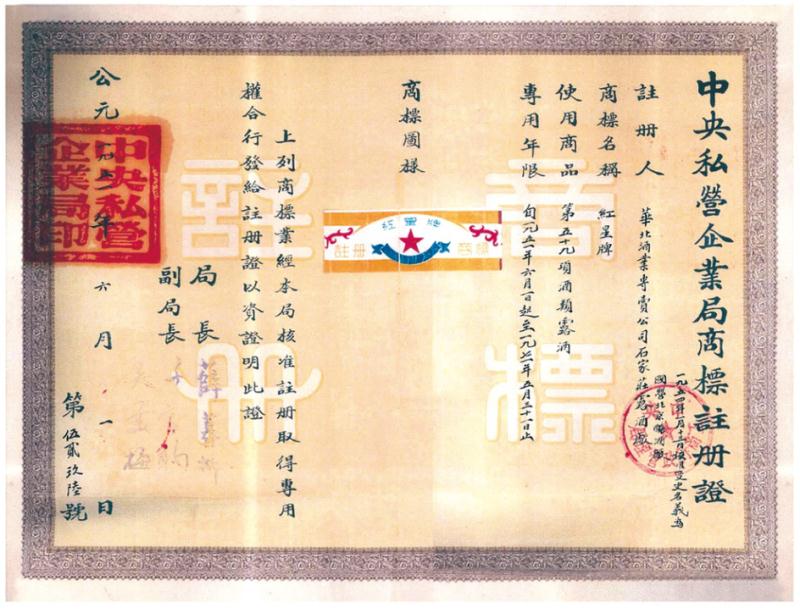 中央私營企業局商標註冊證
註冊人 華北酒業專賣公司石家莊露酒廠
國營北京釀酒廠
商標名稱 紅星牌
使用商品 第五十九項酒類露酒
專用年限 自一九五一年六月一日起至一九七一年五月三十一日止
商標圖樣
紅星牌
註冊 商標
上列商標業經本局核准註冊取得專用
權合行發給註冊證以資證明此證
局長 薛暮橋
副局長
公元一九五一年六月一日
中央私營企業局印
第伍貳玖陸號
商標
註冊